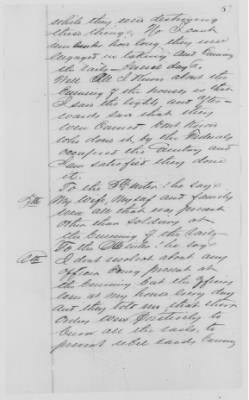 while they were destroying
these things. No I cant
how long they were
engaged in taking and
the rails several days.
Well all I know about the
burning of the houses is that
I saw the lights, and after-
wards saw that they
were burned dont know
who done it, by the Federals
occupied this Country and
I am satisfied they done
it.
To the 7th he says
7th My Wife, Myself and family
were all that was present
other than soldiers at
the burning of the rails
To the 8th he says
8th I dont recollect about any
officers being present at
the burning but the officers
was at my house every day
and they told me that their
orders were positively to
burn all the rails, to
prevent rebel raids